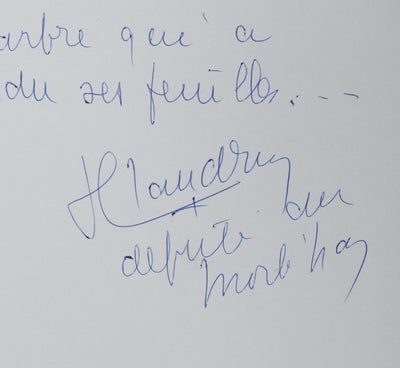 arbre qui a
du ses feuilles. --
H Landrin
député du
Morbihan